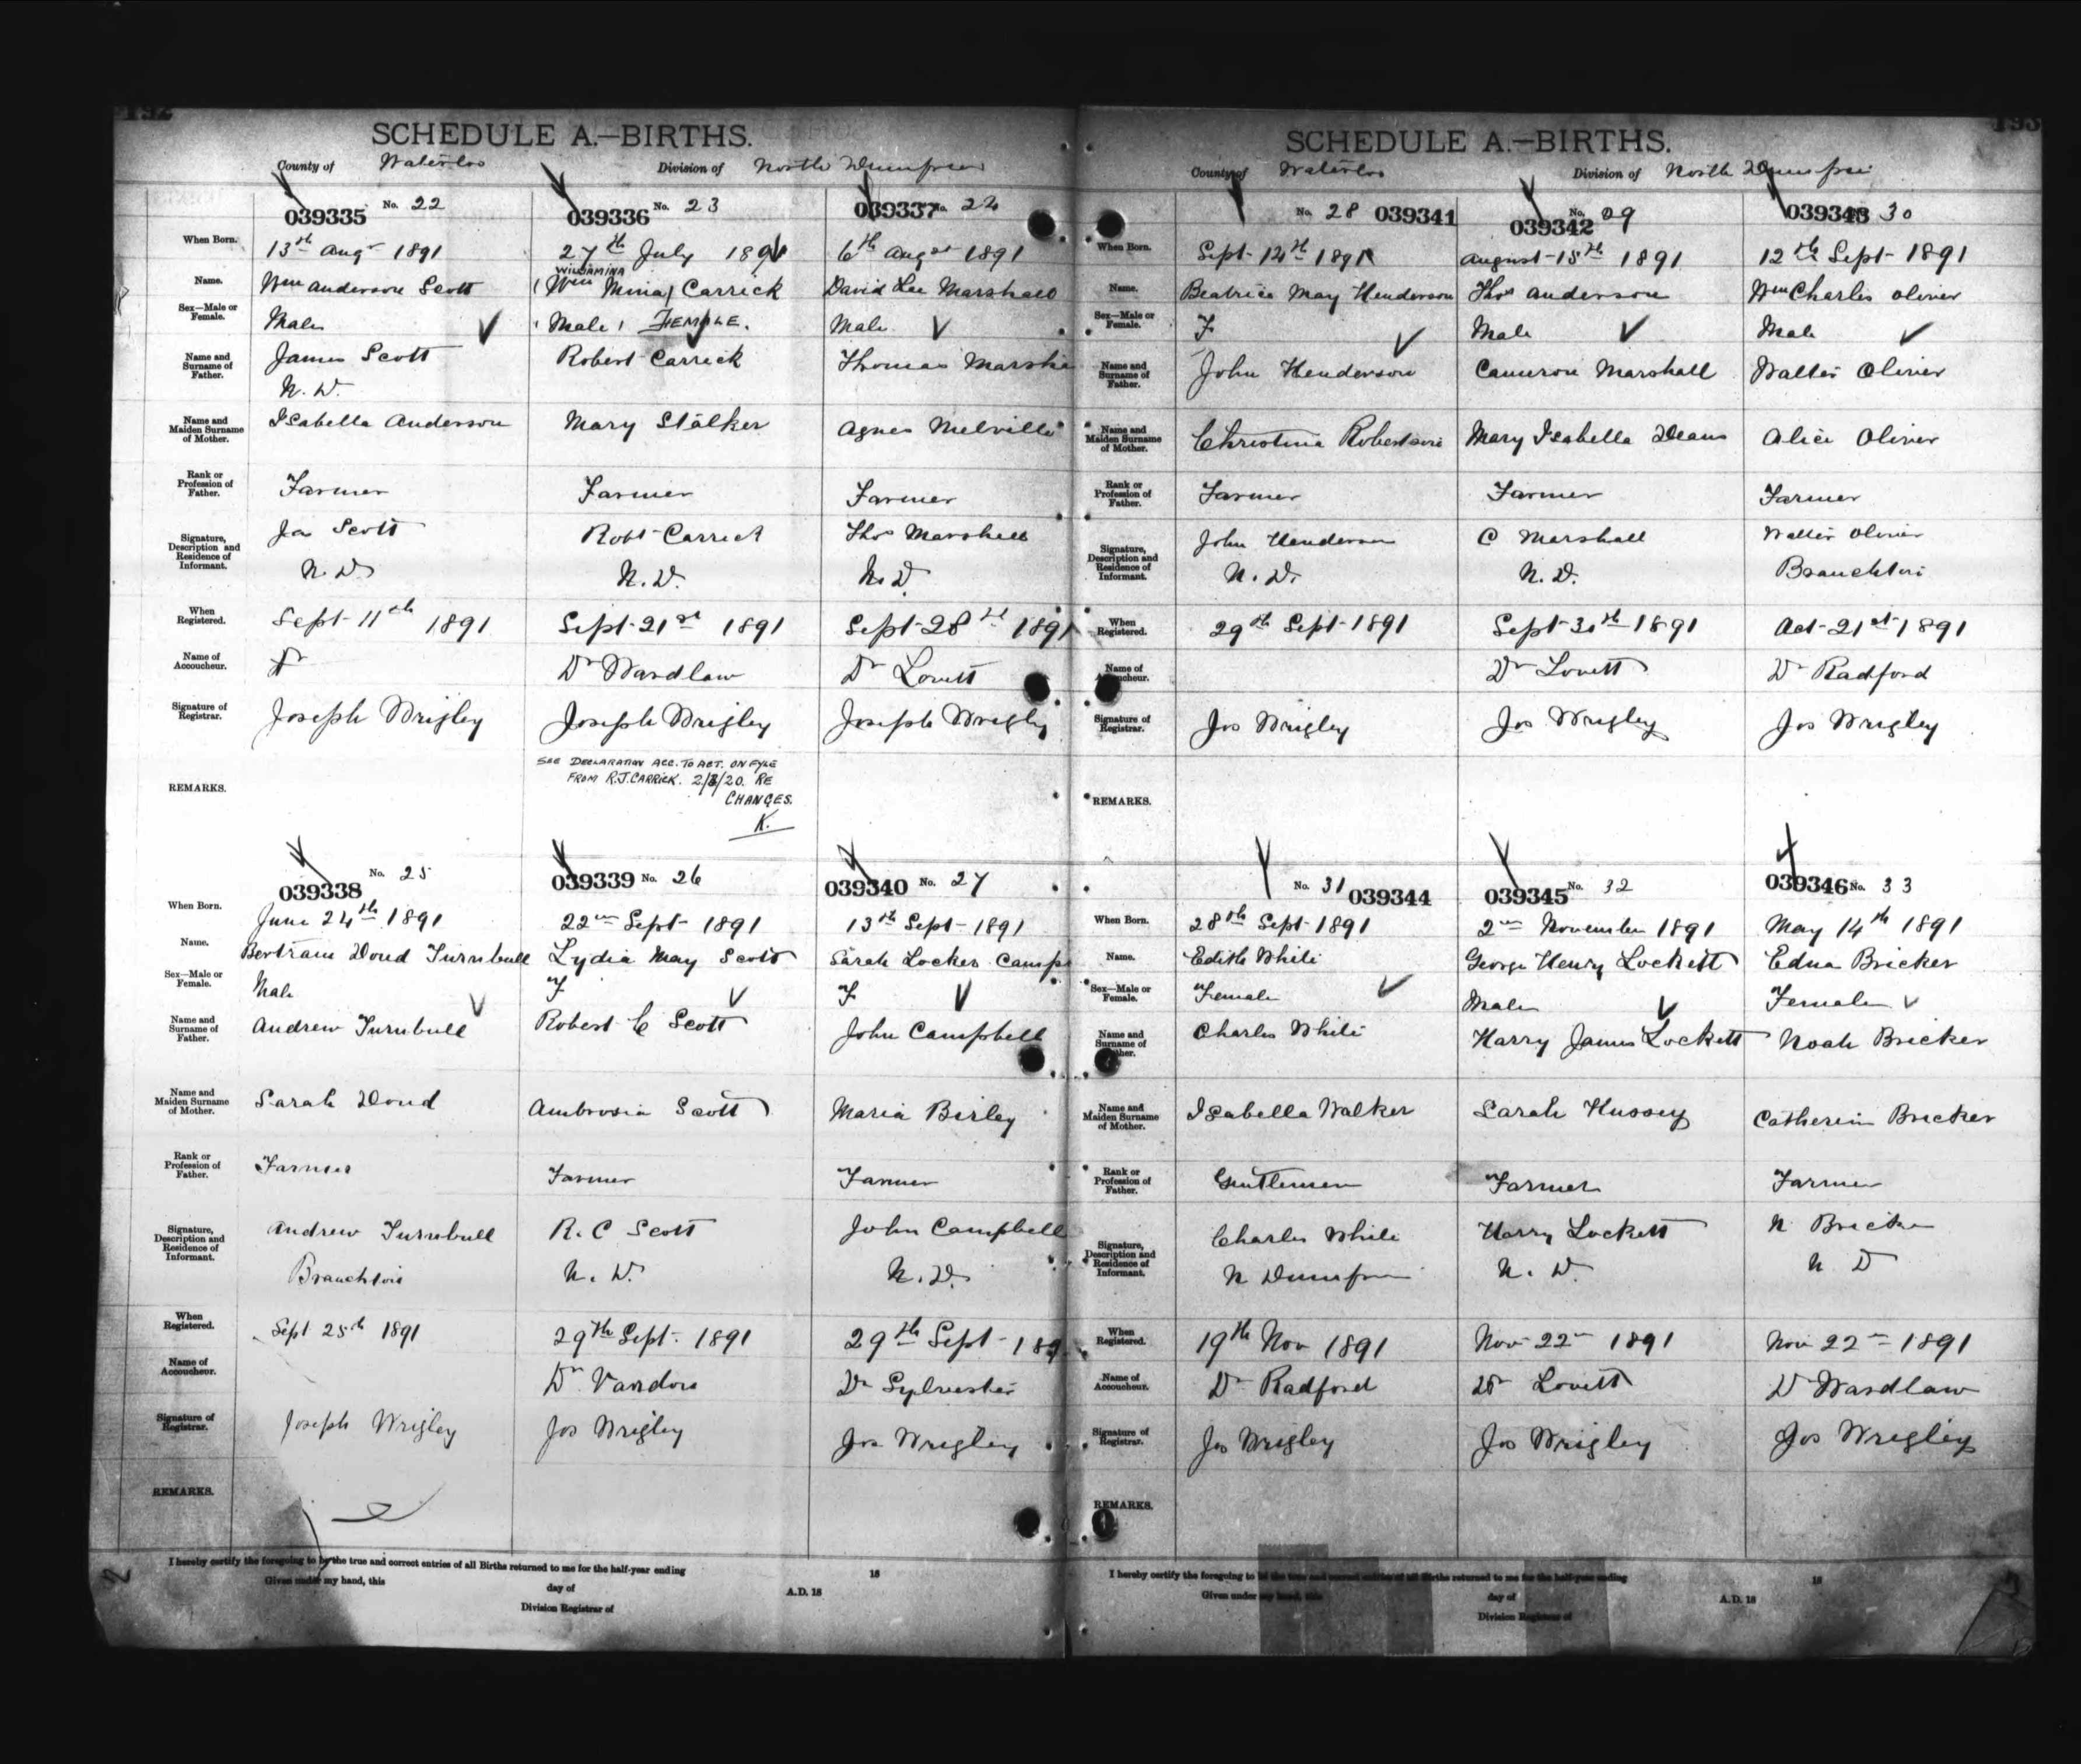 SCHEDULE A.—BIRTHS.
County of Waterloo Division of North Dumfries
039335 No. 22 039336 No. 23 039337 No. 24
When Born. 13th Augst 1891 27th July 1891 6th Augst 1891
WILLIAMINA
Name. Wm Anderson Scott (Wm Mina) Carrick David Lee Marshall
Sex—Male or Female. Male (Male) FEMALE. Male
Name and Surname of Father. James Scott Robert Carrick Thomas Marsha
N. D.
Name and Maiden Surname of Mother. Isabella Anderson Mary Stalker Agnes Melville
Rank or Profession of Father. Farmer Farmer Farmer
Signature, Description and Residence of Informant. Ja Scott Robt Carrick Thos Marshall
N. D. N. D. N. D.
When Registered. Sept 11th 1891 Sept 21st 1891 Sept 28th 1891
Name of Accoucheur. Dr Wardlaw Dr Lovett
Signature of Registrar. Joseph Wrigley Joseph Wrigley Joseph Wrigley
REMARKS. SEE DECLARATION ACC. TO ACT. ON FYLE
FROM R.J. CARRICK. 2/3/20. RE
CHANGES.
K.
039338 No. 25 039339 No. 26 039340 No. 27
When Born. June 24th 1891 22nd Sept 1891 13th Sept 1891
Name. Bertram Doud Turnbull Lydia May Scott Sarah Locker Camp
Sex—Male or Female. Male F F
Name and Surname of Father. Andrew Turnbull Robert C Scott John Campbell
Name and Maiden Surname of Mother. Sarah Doud Ambrosia Scott Maria Birley
Rank or Profession of Father. Farmer Farmer Farmer
Signature, Description and Residence of Informant. Andrew Turnbull R. C Scott John Campbell
Branchton N. D. N. D.
When Registered. Sept 25th 1891 29th Sept. 1891 29th Sept 189
Name of Accoucheur. Dr Vardon Dr Sylvester
Signature of Registrar. Joseph Wrigley Jos Wrigley Jos Wrigley
REMARKS.
I hereby certify the foregoing to be the true and correct entries of all Births returned to me for the half-year ending 18
Given under my hand, this day of A.D. 18
Division Registrar of
SCHEDULE A.—BIRTHS.
County of Waterloo Division of North Dumfries
No. 28 039341 039342 No. 29 039343 30
When Born. Sept 14th 1891 August 15th 1891 12th Sept 1891
Name. Beatrice May Henderson Thos Anderson Wm Charles Oliver
Sex—Male or Female. F Male Male
Name and Surname of Father. John Henderson Cameron Marshall Walter Oliver
Name and Maiden Surname of Mother. Christina Robertson Mary Isabella Deans Alice Oliver
Rank or Profession of Father. Farmer Farmer Farmer
Signature, Description and Residence of Informant. John Henderson C Marshall Walter Oliver
N. D. N. D. Branchton
When Registered. 29th Sept 1891 Sept 30th 1891 Oct 21st 1891
Name of Accoucheur. Dr Lovett Dr Radford
Signature of Registrar. Jos Wrigley Jos Wrigley Jos Wrigley
REMARKS.
No. 31 039344 039345 No. 32 039346 No. 33
When Born. 28th Sept 1891 2nd November 1891 May 14th 1891
Name. Edith While George Henry Lockett Edna Bricker
Sex—Male or Female. Female Male Female
Name and Surname of Father. Charles While Harry James Lockett Noah Bricker
Name and Maiden Surname of Mother. Isabella Walker Sarah Hussey Catherin Bricker
Rank or Profession of Father. Gentlemen Farmer Farmer
Signature, Description and Residence of Informant. Charles While Harry Lockett N Bricker
N Dumfries N. D. N D
When Registered. 19th Nov 1891 Nov 22nd 1891 Nov 22nd 1891
Name of Accoucheur. Dr Radford Dr Lovett Dr Wardlaw
Signature of Registrar. Jos Wrigley Jos Wrigley Jos Wrigley
REMARKS.
I hereby certify the foregoing to be the true and correct entries of all Births returned to me for the half-year ending 18
Given under my hand, this day of A.D. 18
Division Registrar of